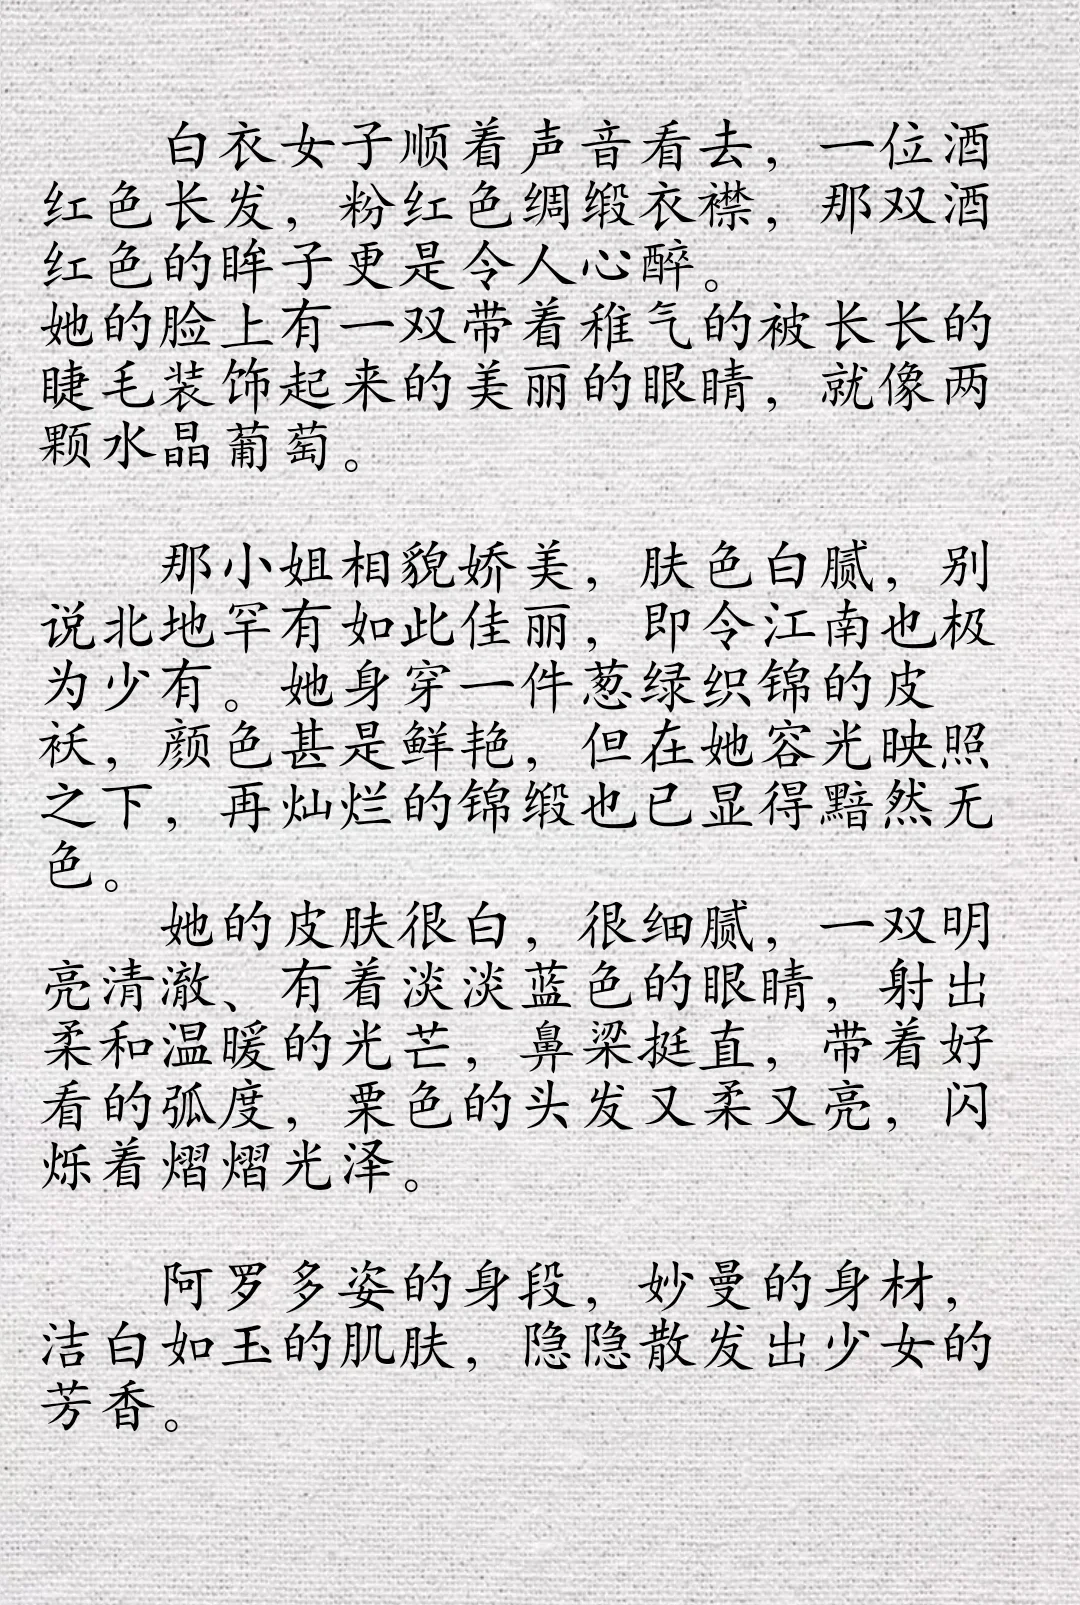 白衣女子顺着声音看去，一位酒
红色长发，粉红色绸缎衣襟，那双酒
红色的眸子更是令人心醉。
她的脸上有一双带着稚气的被长长的
睫毛装饰起来的美丽的眼睛，就像两
颗水晶葡萄。
那小姐相貌娇美，肤色白腻，别
说北地罕有如此佳丽，即令江南也极
为少有。她身穿一件葱绿织锦的皮
袄，颜色甚是鲜艳，但在她容光映照
之下，再灿烂的锦缎也已显得黯然无
色。
她的皮肤很白，很细腻，一双明
亮清澈、有着淡淡蓝色的眼睛，射出
柔和温暖的光芒，鼻梁挺直，带着好
看的弧度，栗色的头发又柔又亮，闪
烁着熠熠光泽。
阿罗多姿的身段，妙曼的身材，
洁白如玉的肌肤，隐隐散发出少女的
芳香。